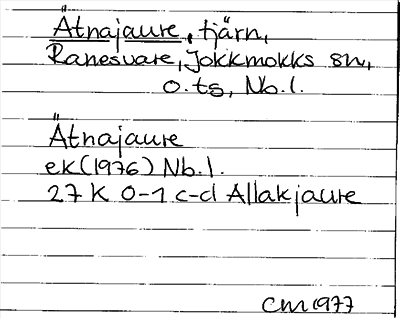 Ätnajaure, tjärn,
Ranesvare, Jokkmokks sn,
o. ts, Nb. l.
Ätnajaure
ek (1976) Nb. l.
27 K 0-1 c-d Allakjaure
CM 1977